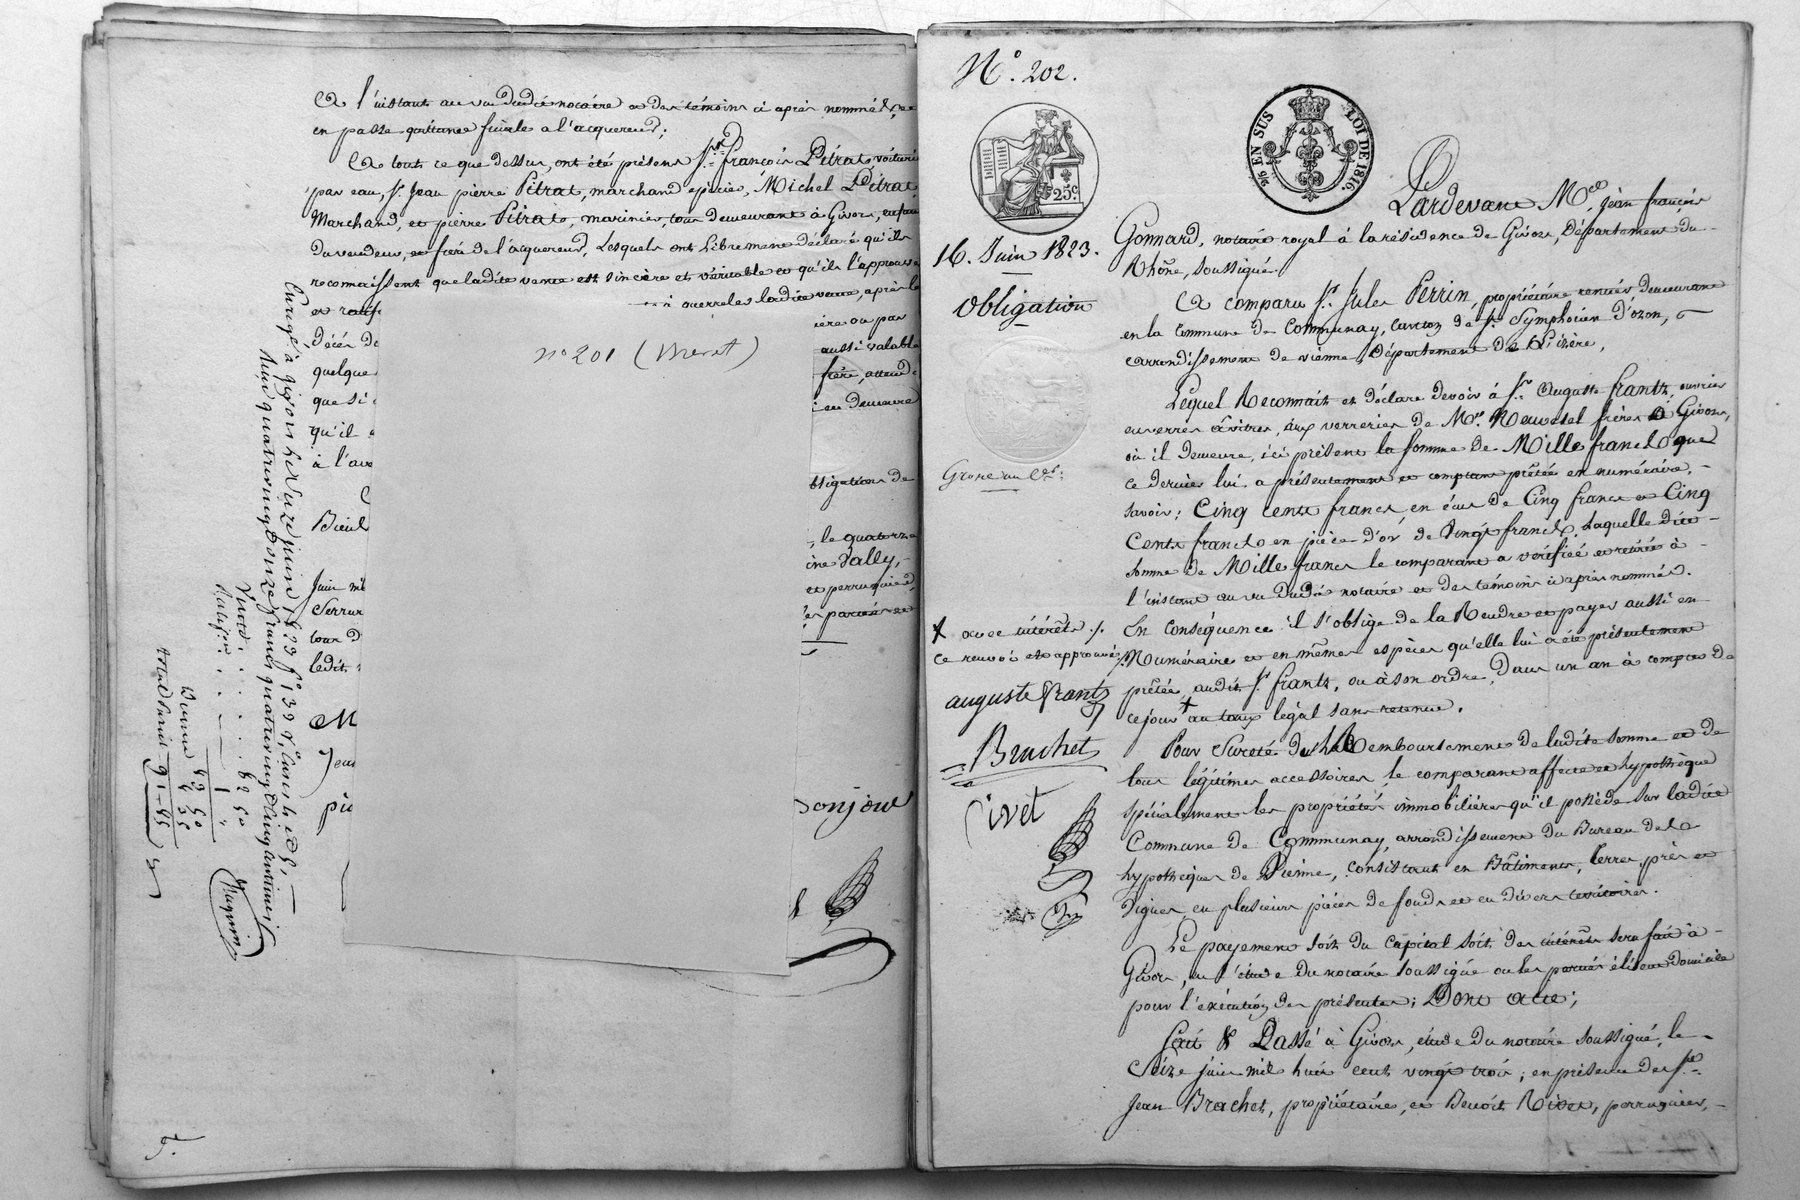 Et l'instant au vu dudit notaire et des témoins ci après nommés, et
en passe quittance finale a l'acquereur;
Et tout ce que dessus, ont été présens Srs françois Pitrat, voiturier
par eau, Sr Jean pierre Pitrat, marchand épicier, Michel Pitrat
Marchand, et pierre Pitrat, marinier, tous demeurant à Givors, enfans
du vendeur, et frère de l'acquereur, Lesquels ont librement déclaré qu'ils
reconnaissent que ladite vente est sincère et véritable et qu'ils l'approuvent
et ratif
quereler ladite vente, après le
décès de
ière ou par
quelque
aussi valable
que si
frère, attendu
qu'il
demeure
à l'ave
bligations de
, le quatorze
ine Vally,
Juin mil
et perruquier
Serrur
parties
tous d
ledit
M
Jean
pi
Bonjour
no 201 (Brevet)
Enregé à givors le seize juin 1823 fo 139 vo
Reçu quatre vingt onze francs quatre vingt cinq centimes
Vente 82 50
Ratifion 1 "
83 50
Dixme 8 35
Total Perçu 91-85
N°. 202.
25c.
2/6 EN SUS
LOI DE 1816.
16. Juin 1823.
Obligation
Grosse au Cer.
Pardevant Me. jean françois
Gonnard, notaire royal à la résidence de Givors, Département du
Rhône, soussigné.
Et comparu Sr. Jules Perrin, propriétaire rentier, demeurant
en la commune de Communay, canton de St. Symphorien d'ozon,
arrondissement de vienne, Département de l'isère,
Lequel Reconnait et déclare devoir à Sr. Auguste frantz, ouvrier
en verres à vitres, aux verreries de Mrs. Neuvesel frères à Givors,
où il demeure, ici présent la somme de Mille francs que
ce dernier lui a présentement et comptant prêtée en numéraire,
savoir: Cinq cents francs, en écus de Cinq francs et Cinq
Cents francs en pièces d'or de Vingt francs, laquelle dite
somme de Mille francs le comparant a vérifiée et retirée à
l'instant au vu dudit notaire et des témoins ci après nommés.
En conséquence il s'oblige de la Rendre et payer aussi en
Numéraire et en mêmes espèces qu'elle lui a été présentement
prêtée, audit Sr. frantz, ou à son ordre, Dans un an à compter de
ce jour + au taux légal sans retenue.
+ avec intérêts ./.
ce renvoi est approuvé ./.
auguste frantz
Brachet
Rivet
Pour Sureté du Remboursement de ladite somme et de
tous légitimes accessoires, le comparant affecte et hypothèque
spécialement les propriétés immobilières qu'il possède sur ladite
Commune de Communay, arrondissement du Bureau de la
hypothèques de Vienne, Consistant en Bâtiments, terres, prés et
vignes, en plusieurs pièces de fonds et en divers territoires.
Le payement soit du Capital soit des intérêts sera fait à
Givors, en l'étude du notaire soussigné ou les parties élisent Domicile
pour l'exécution des présentes; Dont acte;
Fait & Passé à Givors, étude du notaire soussigné, le
Seize juin mil huit cent vingt trois; en présence des Srs
Jean Brachet, propriétaire, et Benoit Rivet, perruquier,